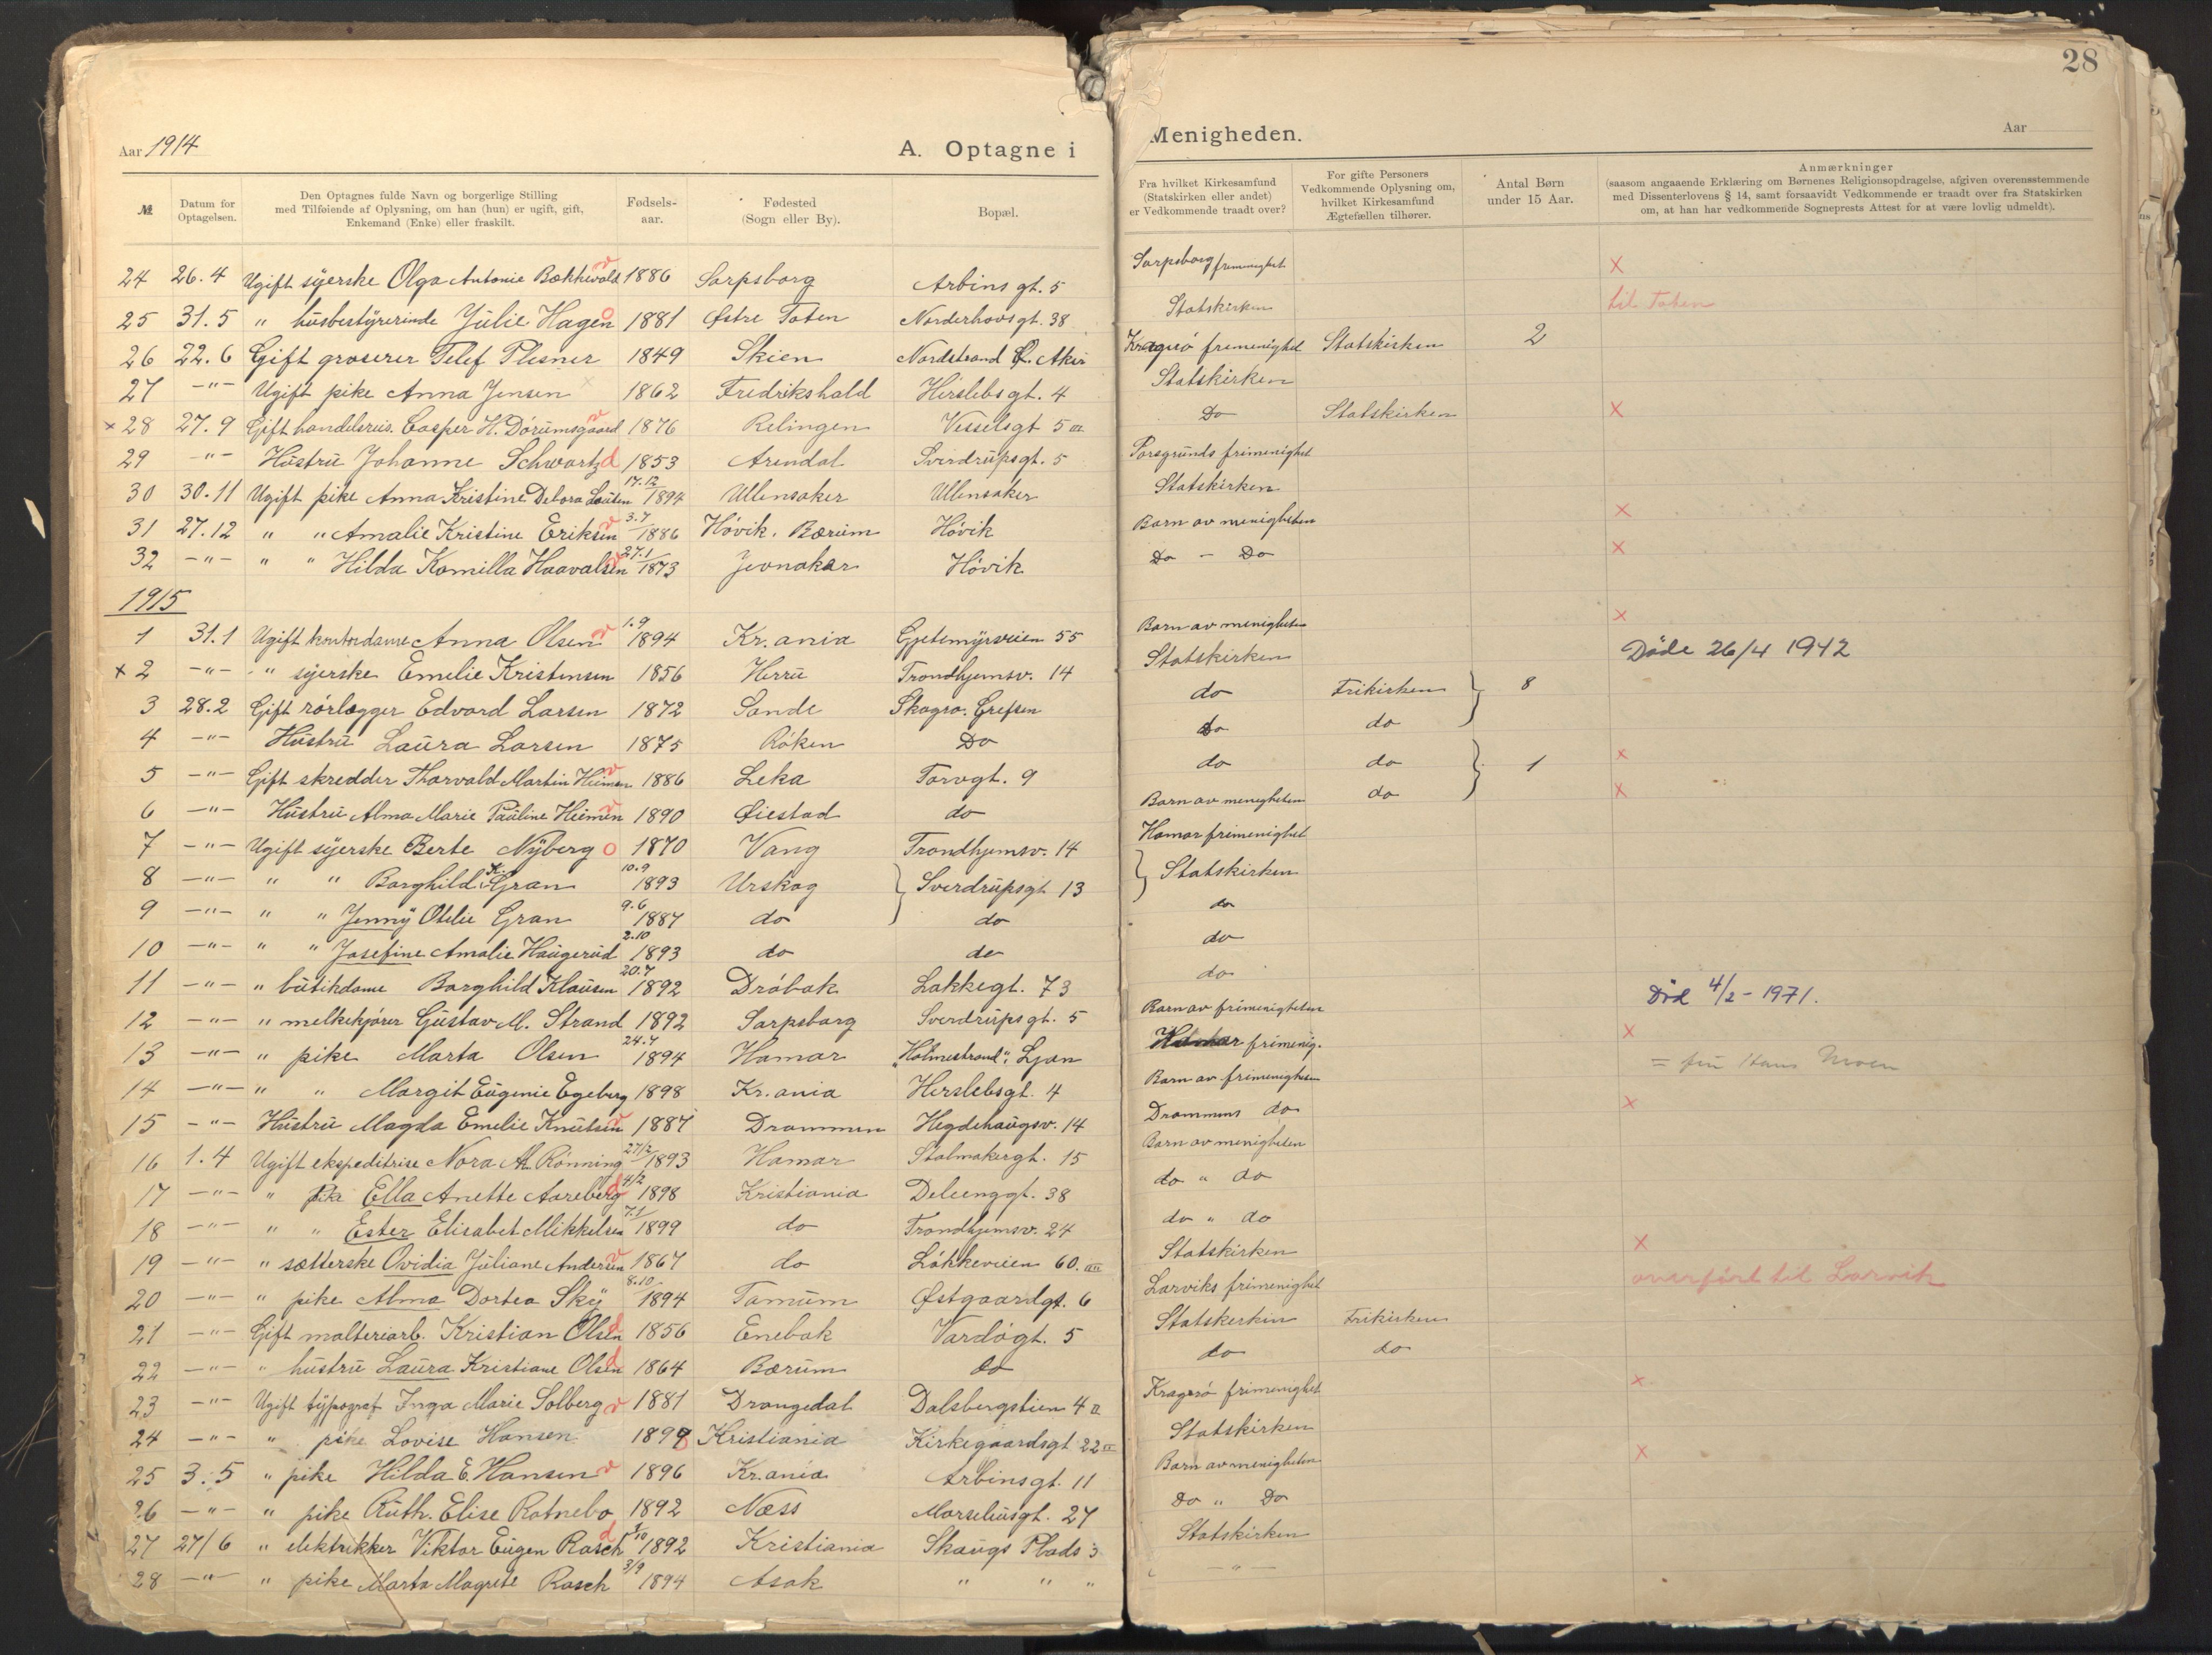 28
Aar 1914 A. Optagne i Menigheden. Aar
№ | Datum for Optagelsen. | Den Optagnes fulde Navn og borgerlige Stilling med Tilføiende af Oplysning, om han (hun) er ugift, gift, Enkemand (Enke) eller fraskilt. | Fødsels-aar. | Fødested (Sogn eller By). | Bopæl. | Fra hvilket Kirkesamfund (Statskirken eller andet) er Vedkommende traadt over? | For gifte Personers Vedkommende Oplysning om, hvilket Kirkesamfund Ægtefællen tilhører. | Antal Børn under 15 Aar. | Anmærkninger (saasom angaaende Erklæring om Børnenes Religionsopdragelse, afgiven overensstemmende med Dissenterlovens § 14, samt forsaavidt Vedkommende er traadt over fra Statskirken om, at han har vedkommende Sogneprests Attest for at være lovlig udmeldt).
24 26.4 Ugift syerske Olga Antonie Bækkevold v 1886 Sarpsborg Arbins gt. 5 Sarpsborg frimenighet x
25 31.5 " husbestyrerinde Julie Hagen o 1881 Østre Toten Norderhovsgt. 38 Statskirken til Toten
26 22.6 Gift groserer Telef Plesner 1849 Skien Nordstrand Ø. Aker Kragerø frimenighet Statskirken 2
27 -"- Ugift pike Anna Jensen x 1862 Fredrikshald Herslebsgt. 4 Statskirken
x 28 27.9 Gift handelsreis. Casper H. Dørumsgaard v 1876 Relingen Vesselsgt 5 III Do Statskirken x
29 -"- Hustru Johanne Schwartz d 1853 Arendal Sverdrupsgt. 5 Porsgrunds frimenighet
30 30.11 Ugift pike Anna Kristine Debora Lauten 17.12 1894 Ullensaker Ullensaker Statskirken
31 27.12 " " Amalie Kristine Eriksen v 3.7 1886 Høvik, Bærum Høvik Barn av menigheten x
32 -"- " " Hilda Kamilla Haavalsen v 27.1 1873 Jevnaker Høvik Do - Do x
1915
1 31.1 Ugift kontordame Anna Olsen v 1.9 1894 Kr.ania Gjetemyrsveien 55 Barn av menigheten x
x 2 -"- " syerske Emelie Kristensen 1856 Herru Trondhjemsv. 14 Statskirken Døde 26/4 1942
3 28.2 Gift rørlægger Edvard Larsen 1872 Sande Skogro. Grefsen do Frikirken } 8
4 -"- Hustru Laura Larsen 1875 Røken Do Do do
5 -"- Gift skredder Thorvald Martin Heimen v 1886 Leka Torvgt. 9 do do } 1 x
6 -"- Hustru Alma Marie Pauline Heimen v 1890 Øiestad do Barn av menigheten do x
7 -"- Ugift syerske Berte Nyberg o 1870 Vang Trondhjemsv. 14 Hamar frimenighet
8 -"- " " Borghild K. Gran 10.9 1893 Urskog } Sverdrupsgt 13 } Statskirken
9 -"- " " Jenny Otelie Gran 9.6 1887 do do do
10 -"- " " Josefine Amalie Haugerud 2.10 1893 do do do
11 -"- " butikdame Borghild Klausen 20.7 1892 Drøbak Lakkegt. 73 do Død 4/2 - 1971.
12 -"- " melkekjører Gustav M. Strand 1892 Sarpsborg Sverdrupsgt. 5 Barn av frimenigheten
13 -"- " pike Marta Olsen 24.7 1894 Hamar "Holmestrand", Ljan Hamar frimenig. x
= fru Hans Moen
14 -"- " " Margit Eugenie Egeberg 1898 Kr.ania Herslebsgt. 4 Barn av frimenigheten
15 -"- Hustru Magda Emelie Knutsen v 1887 Drammen Hegdehaugsv. 14 Drammens do x
16 1.4 Ugift ekspeditrise Nora M. Rønning 27/2 1893 Hamar Stolmakergt. 15 Barn av menigheten
17 -"- " Pike Ella Anette Aareberg d 4/2 1898 Kristiania Deleenggt. 38 do " do
18 -"- " " Ester Elisabet Mikkelsen 7.1 1899 do Trondhjemsv. 24 do " do
19 -"- " sætterske Ovidia Juliane Andersen v 1867 do Løkkeveien 60. III Statskirken x
20 -"- " pike Alma Dortea Sky 8.10 1894 Tamum Østgaardgt. 6 Larviks frimenighet overført til Larvik
21 -"- Gift malteriarb. Kristian Olsen d 1856 Enebak Vardøgt. 5 Statskerkin Frikirken
22 -"- " hustru Laura Kristiane Olsen d 1864 Bærum do do do
23 -"- Ugift typograf Inga Marie Solberg v 1881 Drangedal Dalsbergstien 4 II Kragerø frimenighet x
24 -"- " pike Lovise Hansen 1899 Kristiania Kirkegaardsgt 22 II Statskirken
25 3.5 " pike Hilda E. Hansen v 1896 Kr.ania Arbinsgt. 11 Barn av menigheten x
26 -"- " pike Ruth. Elise Rotnebo 1892 Næss Marseliusgt. 27 Do " Do
27 27/6 " elektrikker Viktor Eugen Rasch d 1/10 1892 Kristiania Skaugs Plads 3 Statskirken
28 -"- " pike Marta Magrete Rasch 3/9 1894 Asak " " " - " -